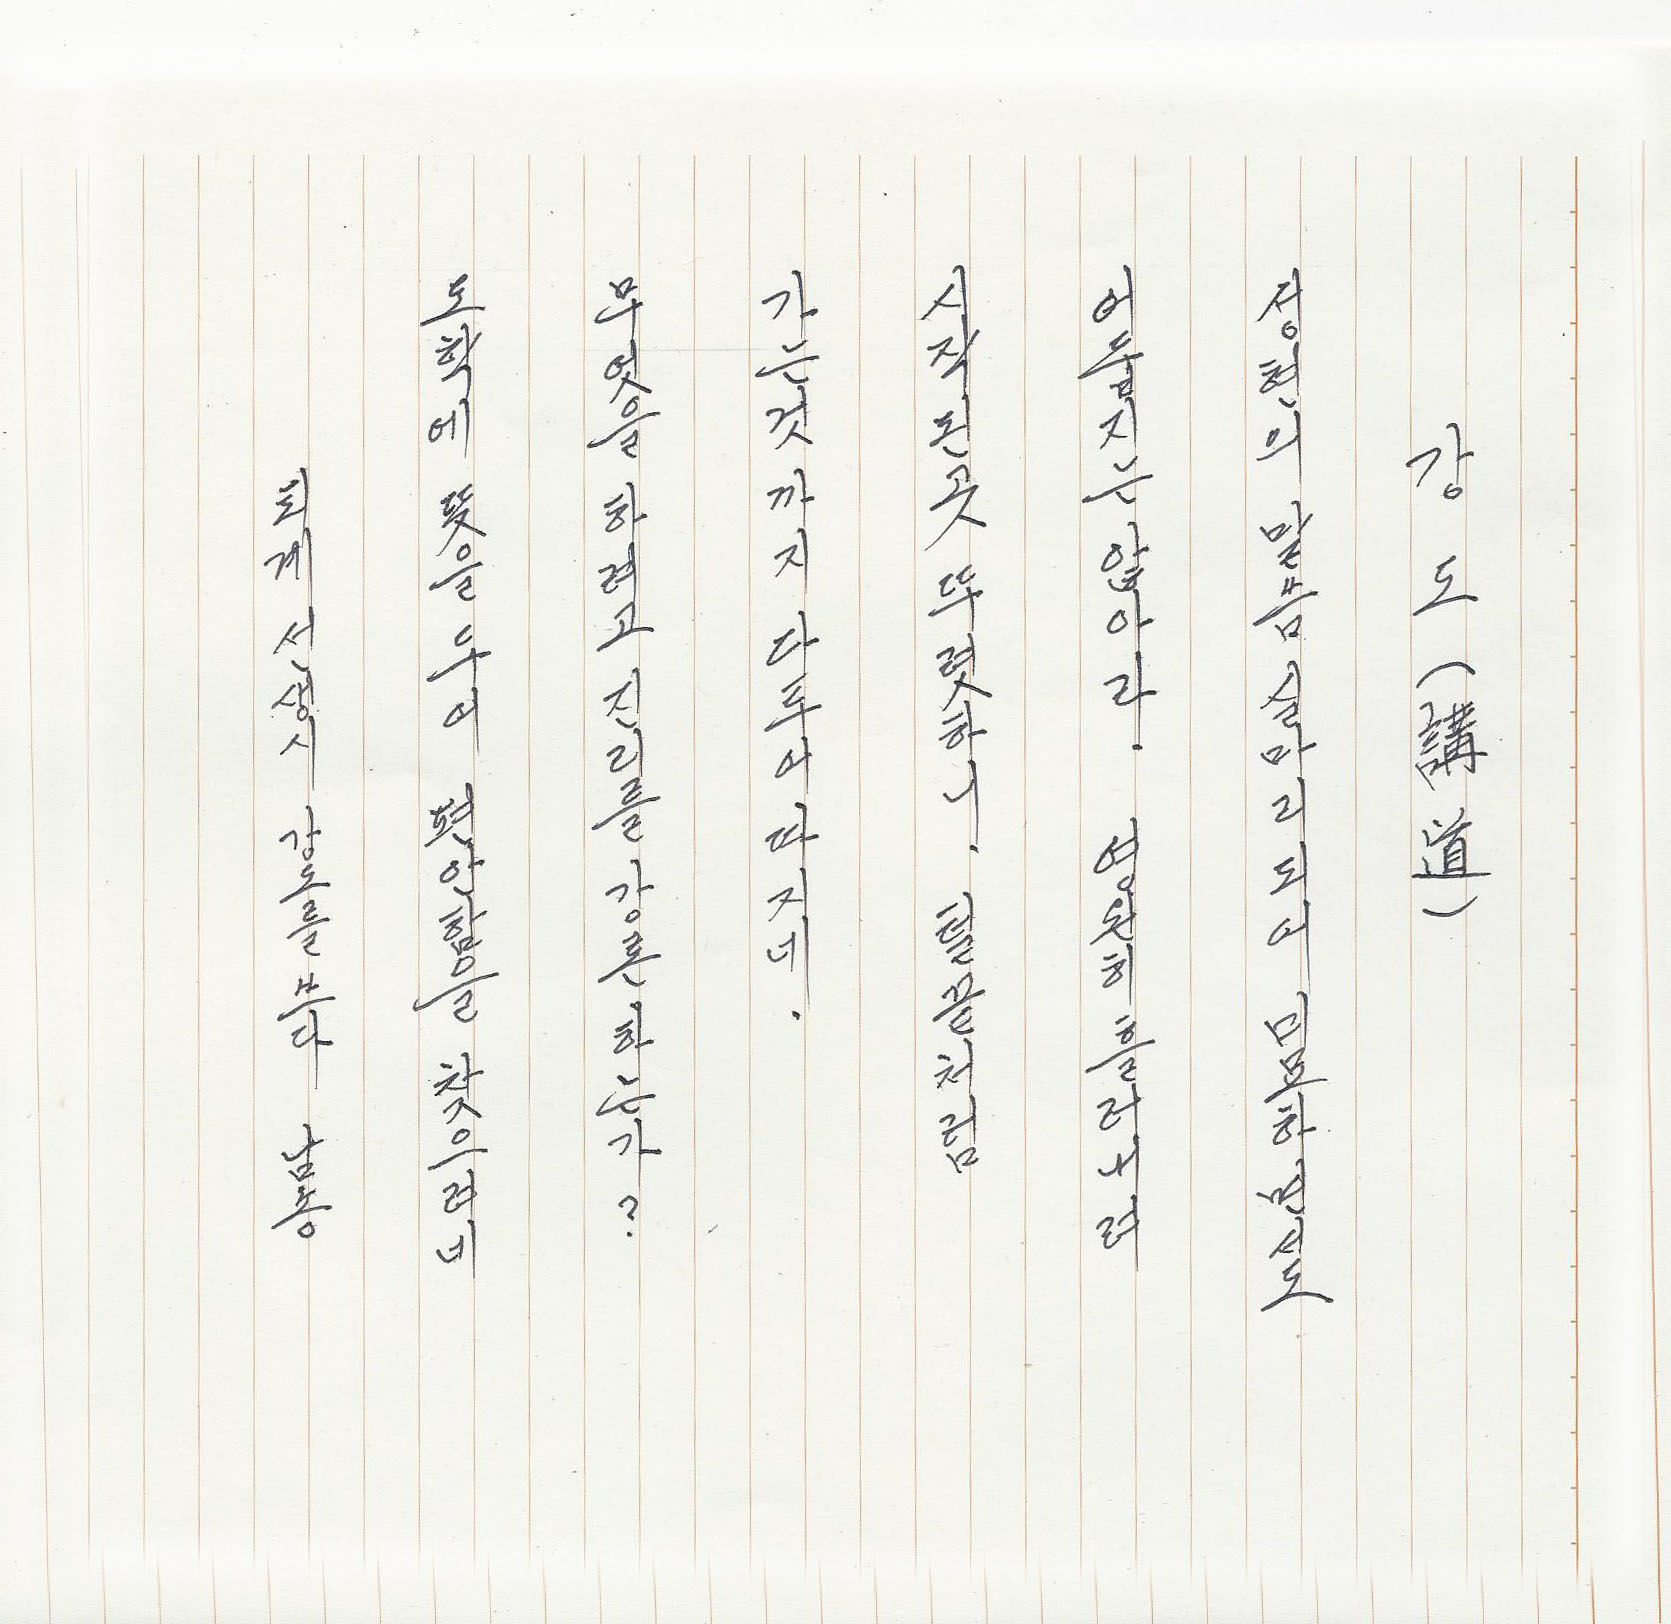 강 도 (講道)
말씀 실마리되어
어둡지는 않아라. 영원히
시작된곳 뚜렷하니. 털끝처럼
가는것 까지 다투어 따지네.
무엇을 하려고 진리를 강론하는가?
도학에 뜻을 두어 편안함을 찾으려네
퇴계 선생시 강도를